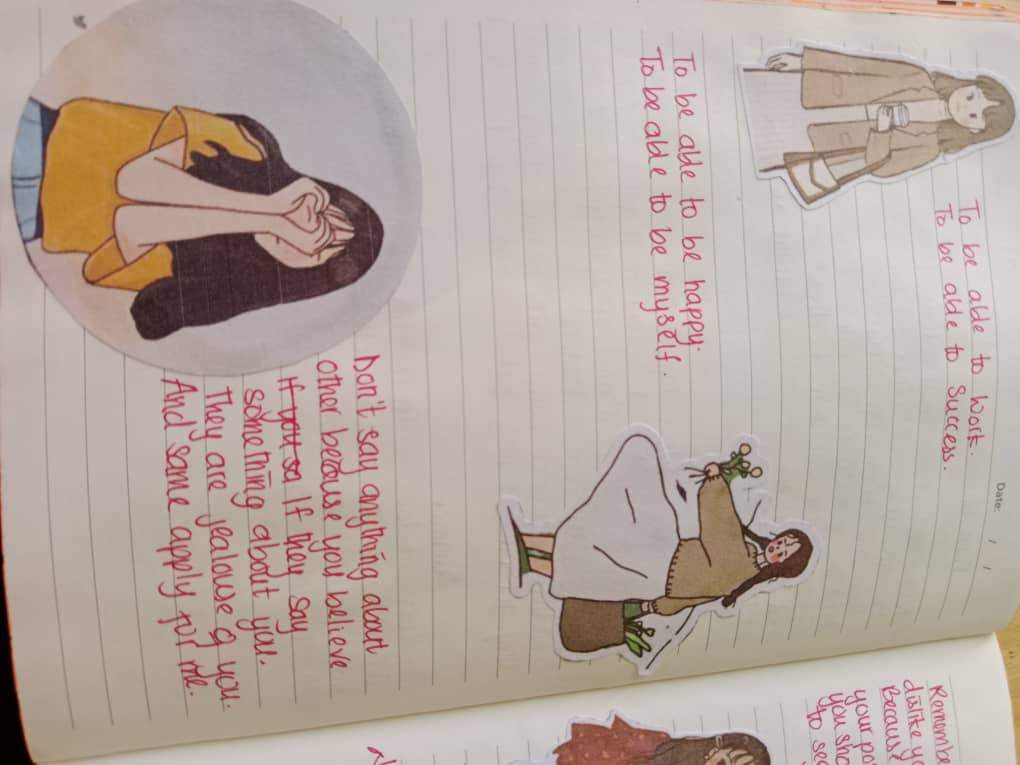 Date: / /
To be able to work.
To be able to Success.
To be able to be happy.
To be able to be myself.
Don't say anything about
other because you believe
If you sa If they say
something about you.
They are jealouse of you.
And same apply for me.
Remembe
dislike yo
Becaus
your po
you sho
to see